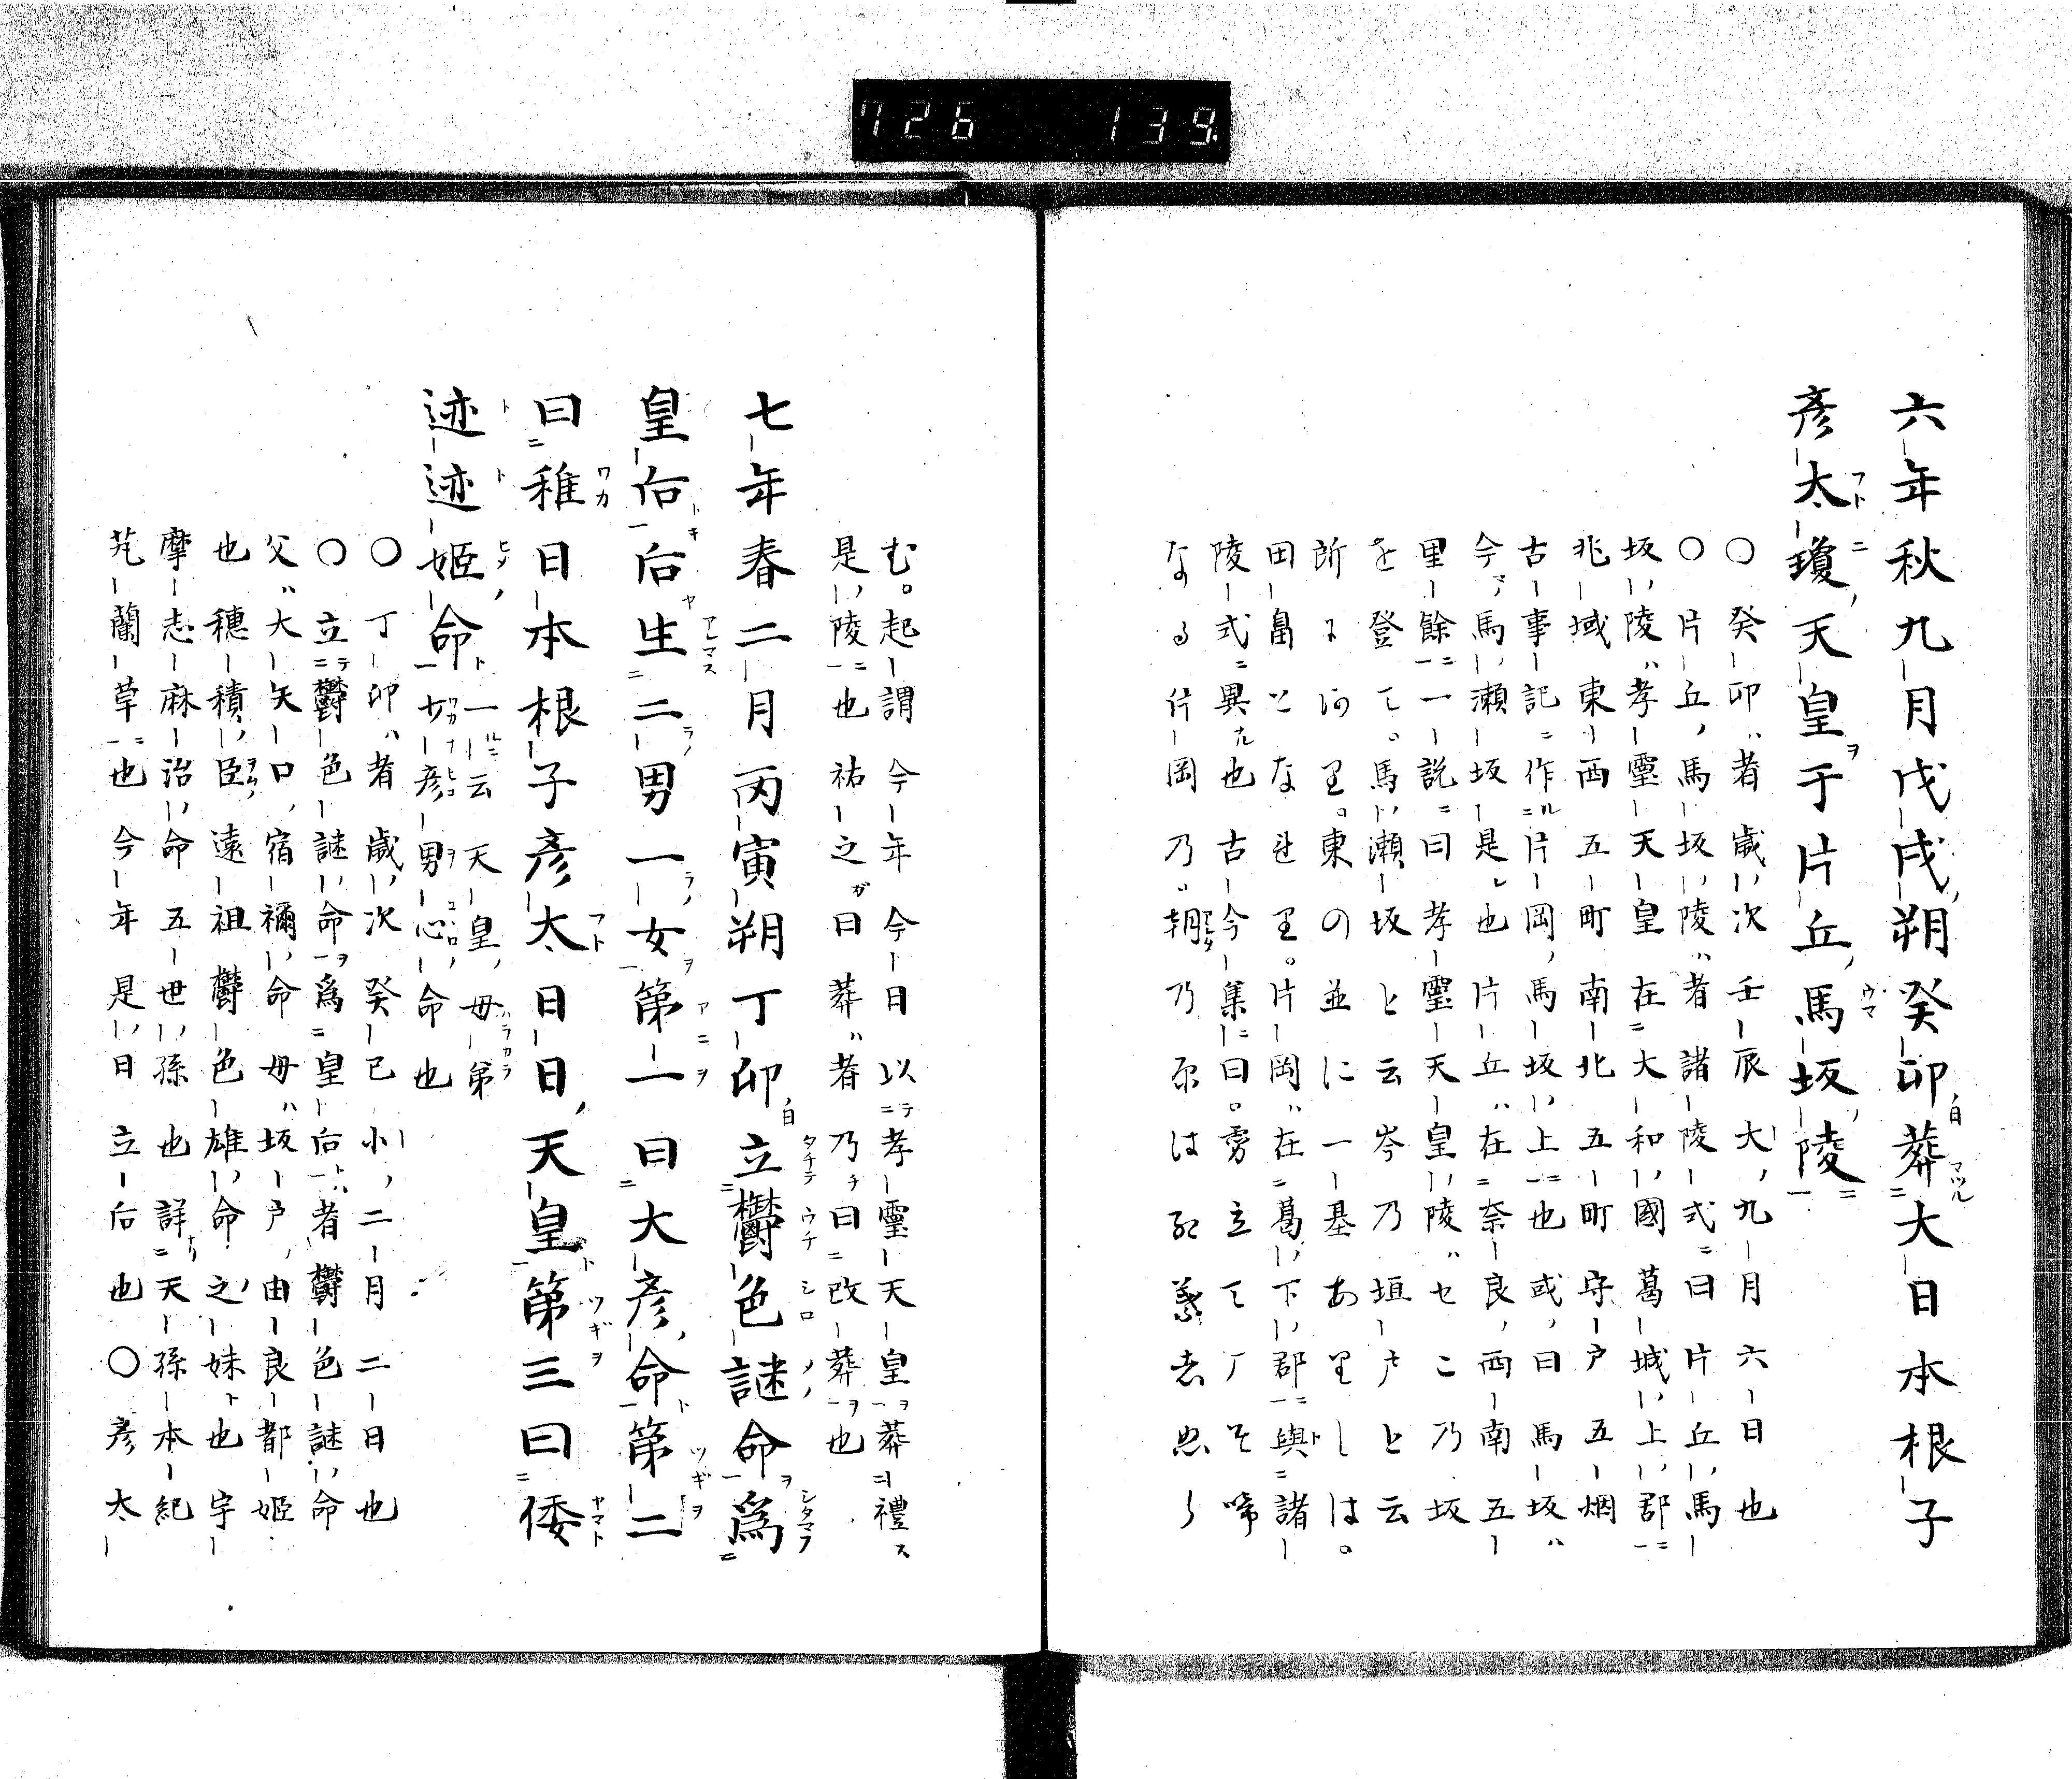 726 139
六年秋九月戊戌朔癸卯葬大日本根子
彦太瓊天皇于片丘馬坂陵
〇癸卯者歳次壬辰大九月六日也
〇片丘馬坂陵者諸陵式曰片丘馬
坂陵孝霊天皇在大和國葛城上郡
兆域東西五町南北五町守戸五烟
古事記作片岡馬坂上也或曰馬坂
今馬瀬坂是也片丘在奈良西南五
里餘一説曰孝霊天皇陵ハセこ乃坂
を登て。馬瀬坂と云岑乃垣戸と云
所に河里。東の並に一基あ里しは。
田畠となれ里。片岡在葛下郡與諸
陵式異也古今集曰。雰立て厂そ啼
なる片岡乃。朝乃原は
む。起謂今年今日以孝霊天皇葬禮
是陵也祐之曰葬者乃曰改葬也
七年春二月丙寅朔丁卯立欝色謎命為
皇后后生二男一女第一曰大彦命第二
曰稚日本根子彦太日日天皇第三曰倭
迹迹姫命一云天皇母弟
少彦男心命也
〇丁卯者歳次癸巳小二月二日也
〇立欝色謎命為皇后者欝色謎命
父大矢口宿禰命母坂戸由良都姫
也穂積臣遠祖欝色雄命之妹也宇
摩志麻治命五世孫也詳天孫本紀
芄蘭草也今年是日立后也〇彦太